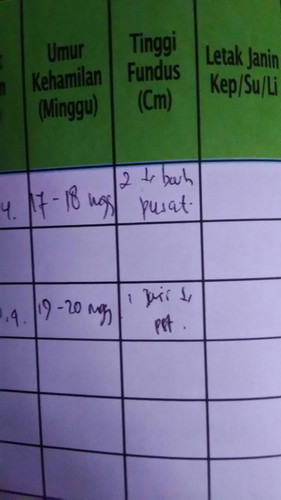 Umur
Kehamilan
(Minggu)
Tinggi
Fundus
(Cm)
Letak Janin
Kep/Su/Li
17-18 mgg
2 bawh
pusat.
19-20 mgg
1